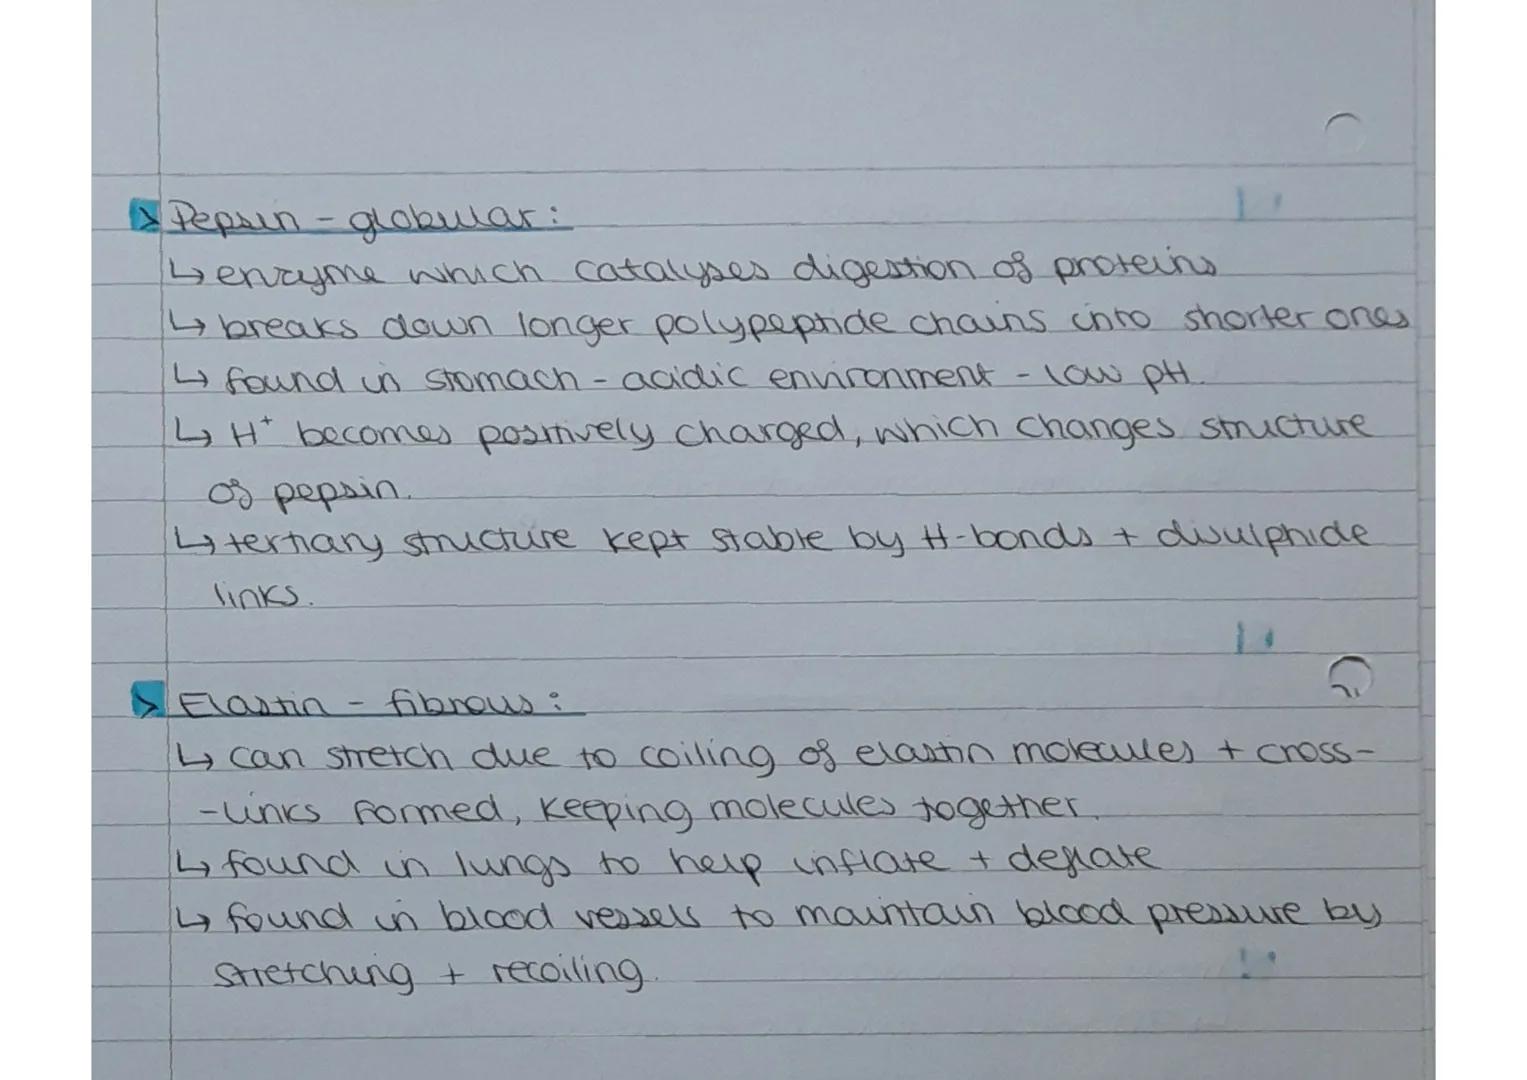 > Pepsin - globular:
↳ enzyme which catalyses digestion of proteins
↳ breaks down longer polypeptide chains into shorter ones
↳ found in stomach - acidic environment - low pH.
↳ H⁺ becomes positively charged, which changes structure
of pepsin.
↳ tertiary structure kept stable by H-bonds + disulphide
links.
> Elastin - fibrous:
↳ can stretch due to coiling of elastin molecules + cross-
-links formed, keeping molecules together.
↳ found in lungs to help inflate + deflate
↳ found in blood vessels to maintain blood pressure by
stretching + recoiling.